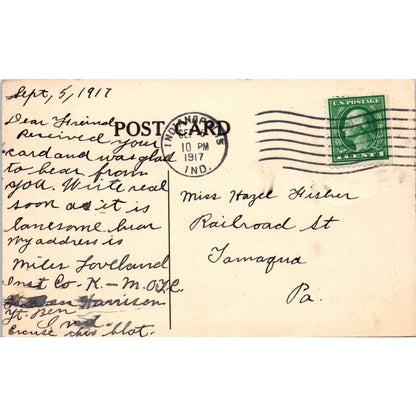 Sept, 5, 1917
Dear Freind
Received your
card and was glad
to hear from
you. Write real
soon as it is
lonesome hear
My address is
Miles Loveland
Inst Co - K - M.O.T.C.
Ft. Ben Harrison
Ft. Ben
Ind
Excuse this blot.
POST CARD
INDIANAPOLIS
SEP
10 PM
1917
IND.
U.S. POSTAGE
1 CENT 1
Miss Hazel Fisher
Railroad St
Tamaqua
Pa.